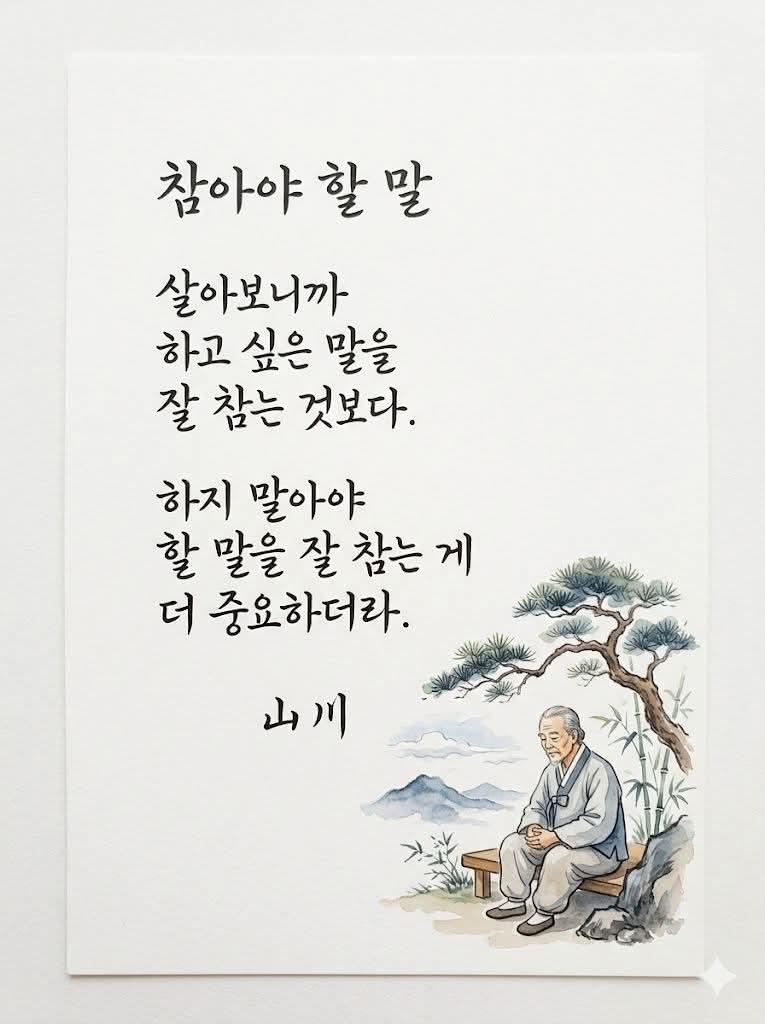 참아야 할 말
살아보니까
하고 싶은 말을
잘 참는 것보다.
하지 말아야
할 말을 잘 참는 게
더 중요하더라.
山川